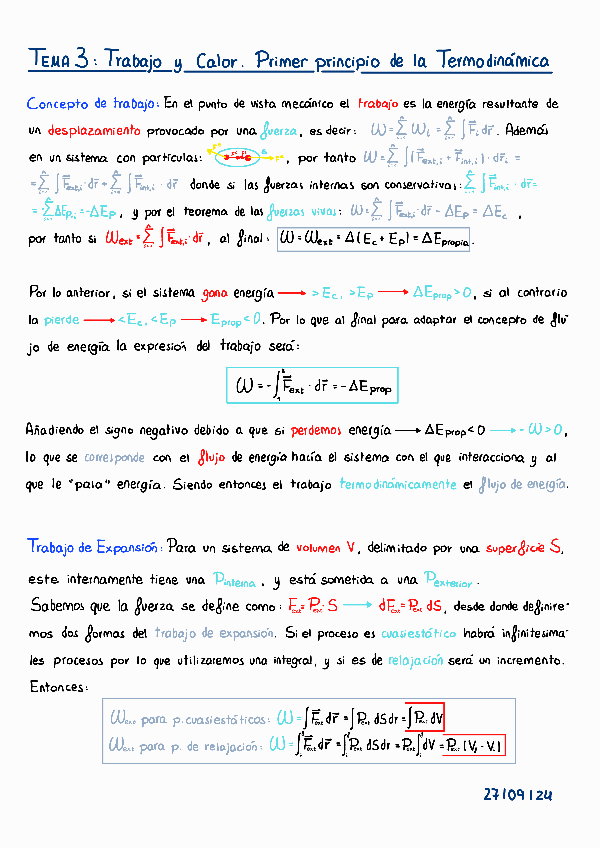 TEMA 3: Trabajo y Calor. Primer principio de la Termodinámica
Concepto de trabajo: En el punto de vista mecánico el trabajo es la energía resultante de
un desplazamiento provocado por una fuerza, es decir: W = Σ Wᵢ = Σ ∫ F⃗ᵢ dr⃗. Además
en un sistema con partículas: , por tanto W = Σ ∫ (F⃗ext,i + F⃗int,i) · dr⃗ᵢ =
= Σ ∫ F⃗ext,i · dr⃗ + Σ ∫ F⃗int,i · dr⃗ donde si las fuerzas internas son conservativas: Σ ∫ F⃗int,i · dr⃗ =
= -Σ ΔEp,i = -ΔEp, y por el teorema de las fuerzas vivas: W = Σ ∫ F⃗ext,i · dr⃗ - ΔEp = ΔEc ,
por tanto si Wext = Σ ∫ F⃗ext,i · dr⃗, al final: W = Wext = Δ(Ec + Ep) = ΔEpropia.
Por lo anterior, si el sistema gana energía → > Ec, > Ep → ΔEprop > 0, si al contrario
la pierde → < Ec, < Ep → Eprop < 0. Por lo que al final para adaptar el concepto de flu-
jo de energía la expresión del trabajo será:
W = -∫ F⃗ext · dr⃗ = -ΔEprop
Añadiendo el signo negativo debido a que si perdemos energía → ΔEprop < 0 → -W > 0,
lo que se corresponde con el flujo de energía hacía el sistema con el que interacciona y al
que le "pasa" energía. Siendo entonces el trabajo termodinámicamente el flujo de energía.
Trabajo de Expansión: Para un sistema de volumen V, delimitado por una superficie S,
este internamente tiene una Pinterna, y está sometida a una Pexterior.
Sabemos que la fuerza se define como: Fext = Pext · S → dFext = Pext dS, desde donde definire-
mos dos formas del trabajo de expansión. Si el proceso es cuasiestático habrá infinitesima-
les procesos por lo que utilizaremos una integral, y si es de relajación será un incremento.
Entonces:
Wext para p. cuasiestáticos: W = ∫ F⃗ext dr⃗ = ∫ Pext dS dr = ∫ Pext dV
Wext para p. de relajación: W = ∫ F⃗ext dr⃗ = ∫ Pext dS dr = Pext ∫ dV = Pext (Vf - Vi)
27/09/24